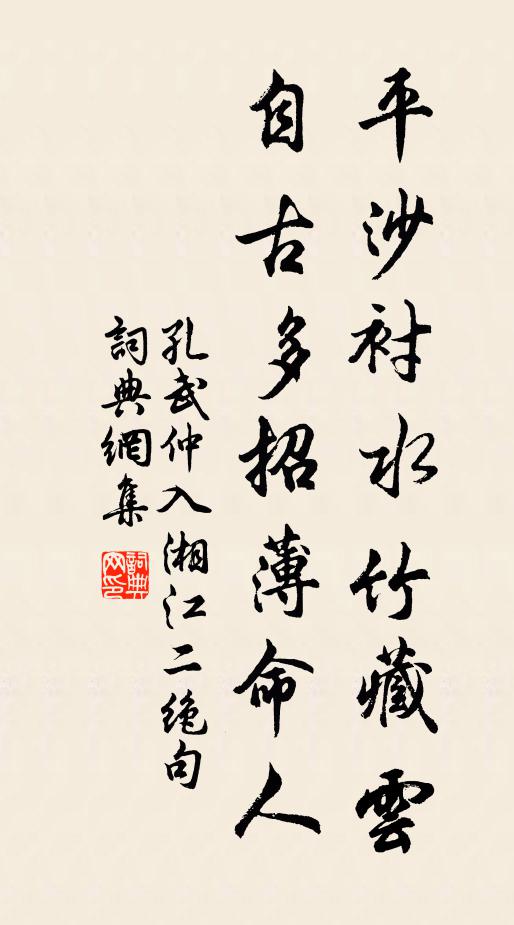 平沙衬水竹藏雲
自古多招薄命人
孔武仲入湘江二絶句
詞典網集
詞典網印